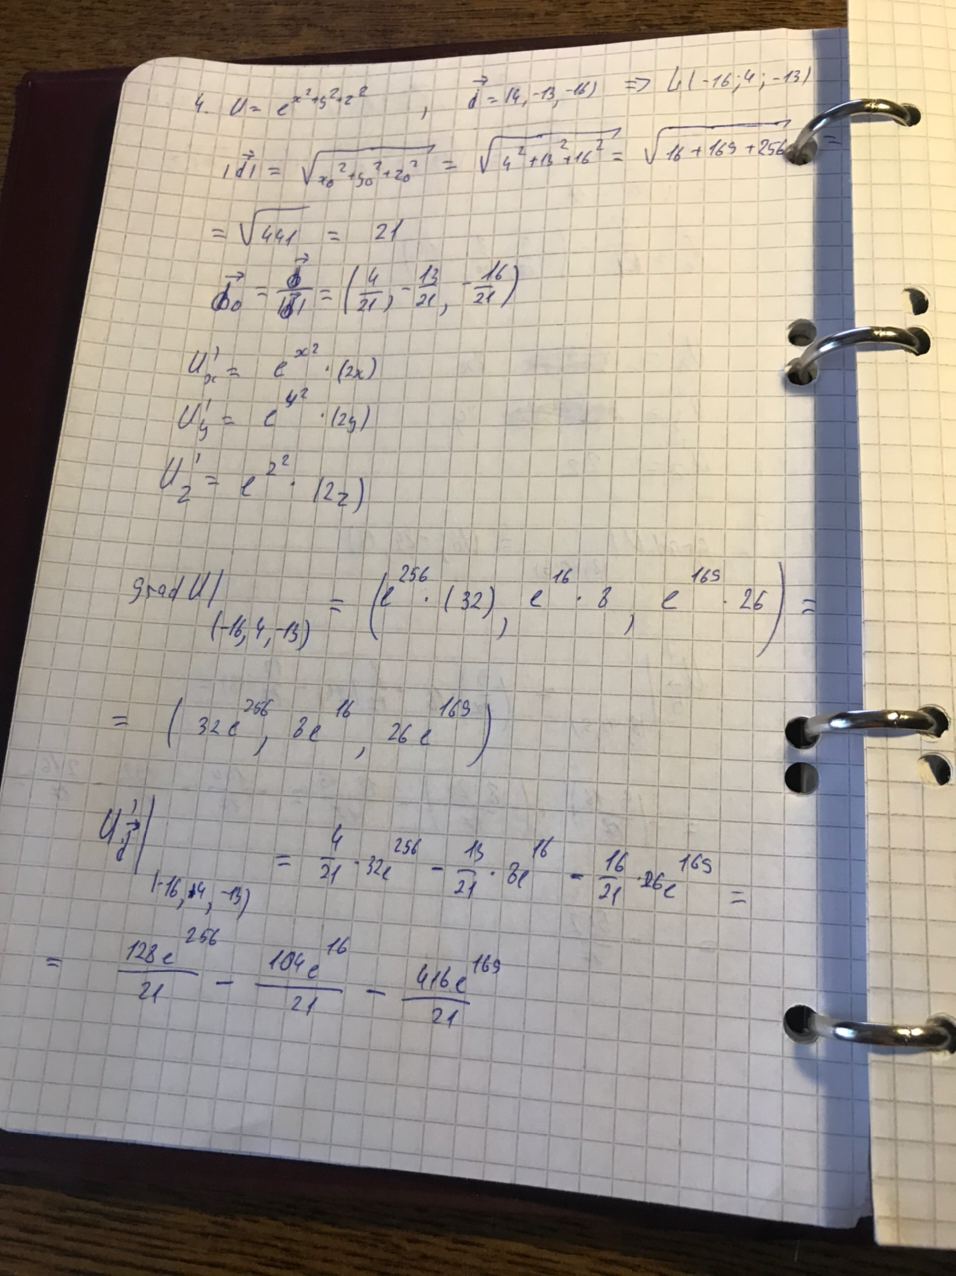 4. U = e^{x²+y²+z²} , d⃗ = (4, -13, -16) => L(-16; 4; -13)
|d⃗| = √(x₀² + y₀² + z₀²) = √(4² + 13² + 16²) = √(16 + 169 + 256) =
= √441 = 21
d⃗₀ = d⃗/|d⃗| = (4/21, -13/21, -16/21)
U'ₓ = e^{x²} · (2x)
U'_y = e^{y²} · (2y)
U'_z = e^{z²} · (2z)
grad U|_{(-16, 4, -13)} = (e^{256} · (32), e^{16} · 8, e^{169} · 26) =
= (32e^{256}, 8e^{16}, 26e^{169})
U'_{d⃗}|_{(-16, 4, -13)} = 4/21 · 32e^{256} - 13/21 · 8e^{16} - 16/21 · 26e^{169} =
= 128e^{256}/21 - 104e^{16}/21 - 416e^{169}/21